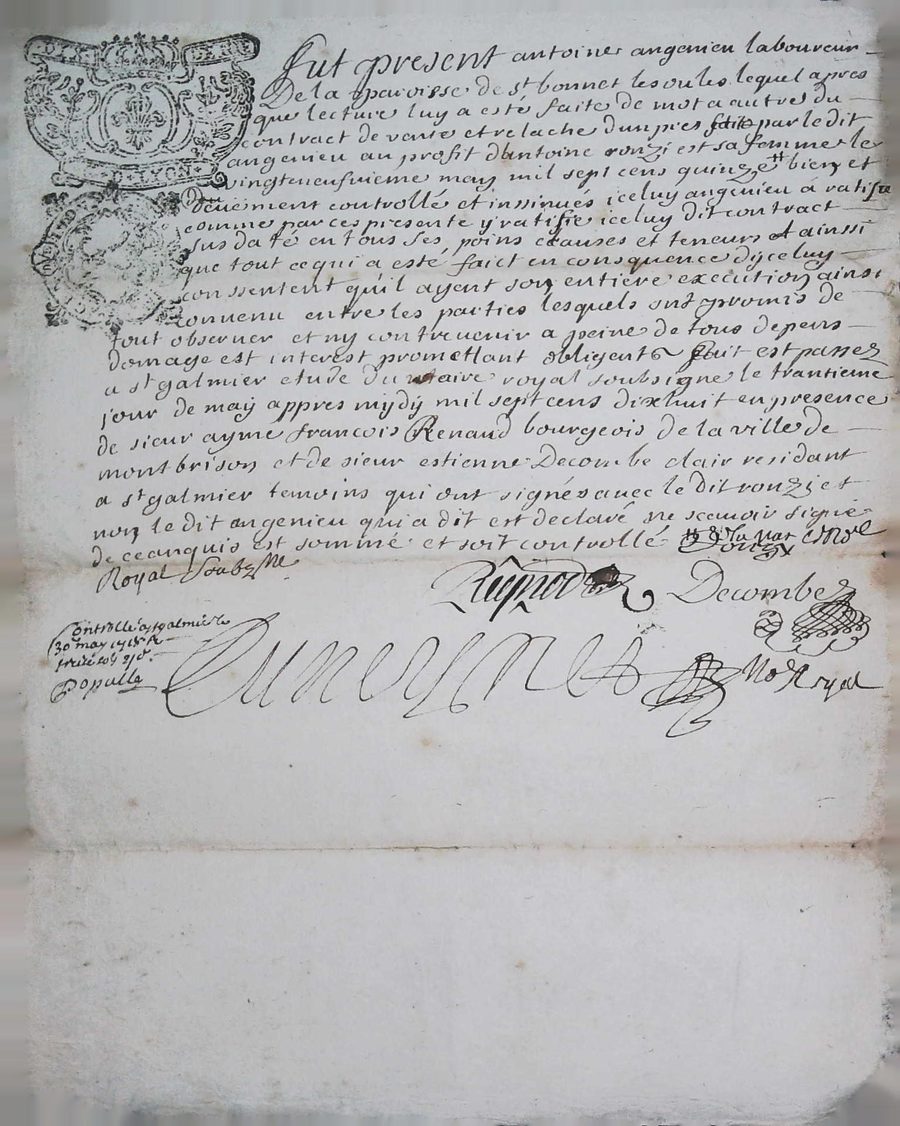 fut present antoine angenieu laboureur
De la paroisse de st bonnet les oules lequel apres
que lecture luy a esté faite de mot a autre du
contract de vante et relache d'un pres faite par le dit
angenieu au profit d'antoine ronzi est sa femme le
vingtneufuieme may mil sept cens quinze bien et
deuement controllé et insinués iceluy angenieu a ratifié
comme par ces presente y ratifie iceluy dit contract
sus daté en tous ses poins clauses et teneurs et ainsi
que tout ce qui a esté faict en consquence d'yceluy
conssentent qu'il ayent son entiere execution ainsi
convenu entre les parties lesquels ont promis de
tout observer et ny contreuenir a peine de tous depens
domage est interest promettant obligent fait est passez
a st galmier etude du notaire royal soubsigne le trantieme
jour de may appres mydy mil sept cens dixhuit en presence
de sieur ayme françois Renaud bourgeois de la ville de
montbrison et de sieur estienne Decombe clair residant
a st galmier temoins qui ont signés avec le dit ronzi et
non le dit angenieu qui a dit est declaré ne scauoir signé
de ce anquis est sommé et soit controllé
Royal
Decombe
Controllé a st galmier le
30 may 1718
treize sols
Populle
No Royal
D LYON